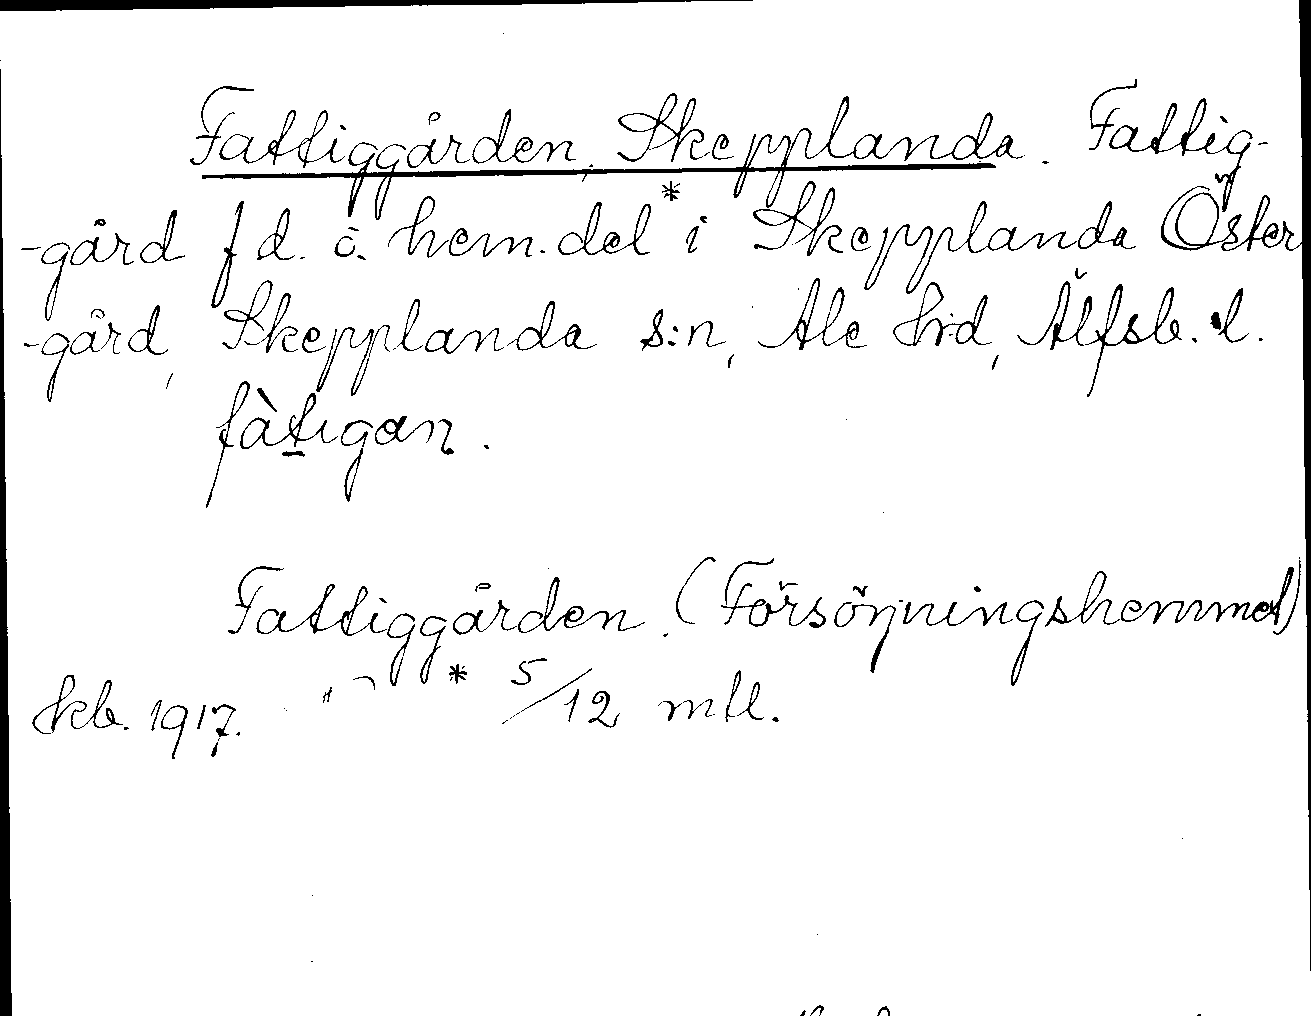 Fattiggården, Skepplanda. Fattig-
-gård f d. o. hem.del* i Skepplanda Öster
-gård, Skepplanda s:n, Ale hrd, Älfsb. l.
fàtigan.
Fattiggården. (Försörjningshemmet)
skb. 1917. " * 5/12 mtl.